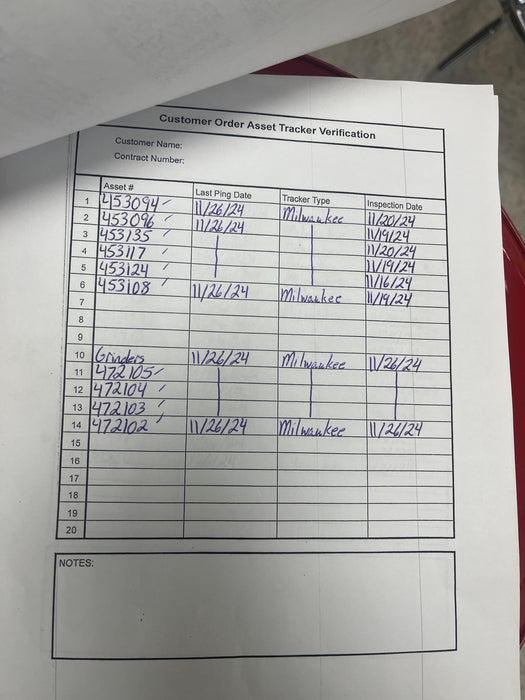 Customer Order Asset Tracker Verification
Customer Name:
Contract Number:
Asset # Last Ping Date Tracker Type Inspection Date
1 453094 11/26/24 Milwaukee 11/20/24
2 453096 11/26/24 11/19/24
3 453135 11/20/24
4 453117 11/19/24
5 453124 11/16/24
6 453108 11/26/24 Milwaukee 11/19/24
7
8
9
10 Grinders 11/26/24 Milwaukee 11/26/24
11 472105
12 472104
13 472103
14 472102 11/26/24 Milwaukee 11/26/24
15
16
17
18
19
20
NOTES: